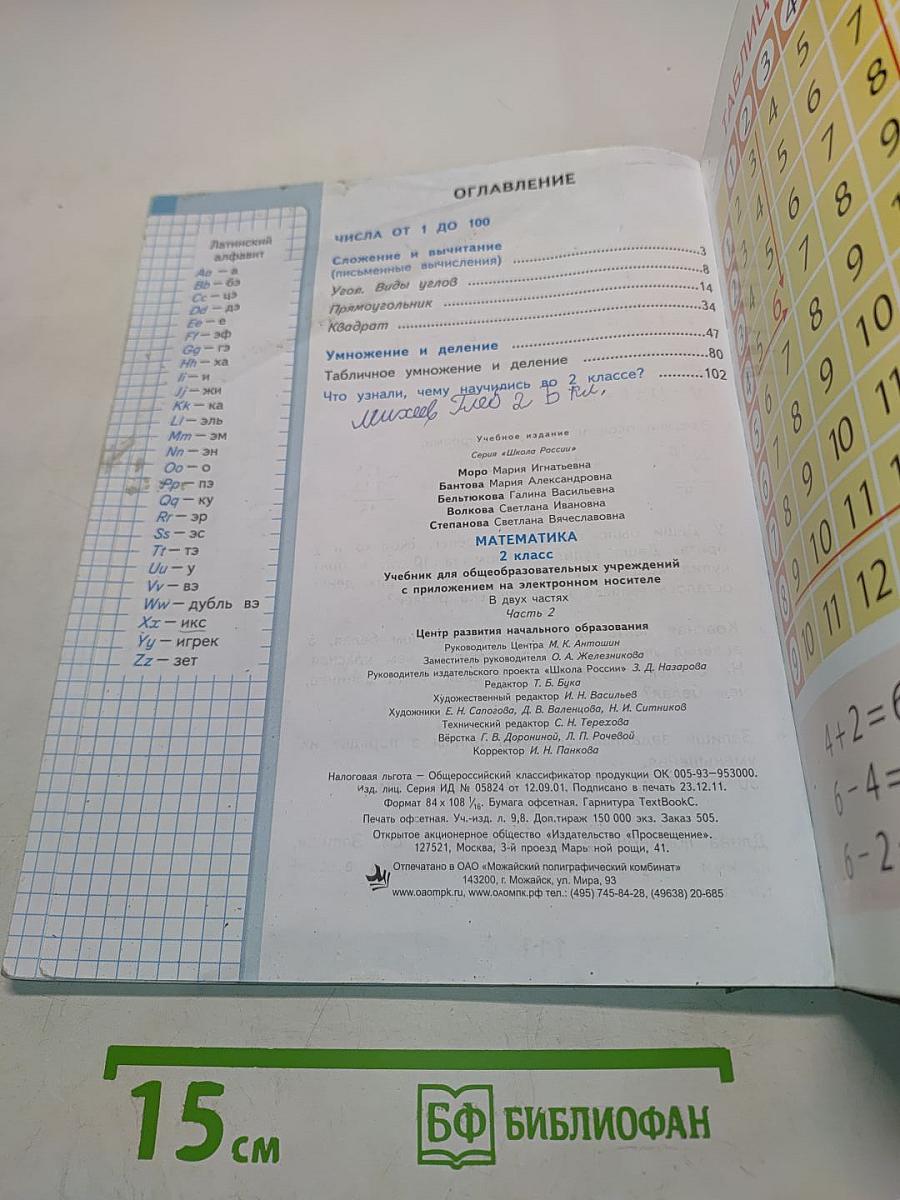 Латинский
алфавит
Aa — а
Bb — бэ
Cc — цэ
Dd — дэ
Ee — е
Ff — эф
Gg — гэ
Hh — ха
Ii — и
Jj — жи
Kk — ка
Ll — эль
Mm — эм
Nn — эн
Oo — о
Pp — пэ
Qq — ку
Rr — эр
Ss — эс
Tt — тэ
Uu — у
Vv — вэ
Ww — дубль вэ
Xx — икс
Yy — игрек
Zz — зет
ОГЛАВЛЕНИЕ
ЧИСЛА ОТ 1 ДО 100
Сложение и вычитание
(письменные вычисления) 3
Угол. Виды углов 8
Прямоугольник 14
Квадрат 34
Умножение и деление 47
Табличное умножение и деление 80
Что узнали, чему научились во 2 классе? 102
Михеев Глеб 2 В кл.
Учебное издание
Серия «Школа России»
Моро Мария Игнатьевна
Бантова Мария Александровна
Бельтюкова Галина Васильевна
Волкова Светлана Ивановна
Степанова Светлана Вячеславовна
МАТЕМАТИКА
2 класс
Учебник для общеобразовательных учреждений
с приложением на электронном носителе
В двух частях
Часть 2
Центр развития начального образования
Руководитель Центра М. К. Антошин
Заместитель руководителя О. А. Железникова
Руководитель издательского проекта «Школа России» З. Д. Назарова
Редактор Т. Б. Бука
Художественный редактор И. Н. Васильев
Художники Е. Н. Сапогова, Д. В. Валенцова, Н. И. Ситников
Технический редактор С. Н. Терехова
Вёрстка Г. В. Дорониной, Л. П. Рочевой
Корректор И. Н. Панкова
Налоговая льгота — Общероссийский классификатор продукции ОК 005-93—953000.
Изд. лиц. Серия ИД № 05824 от 12.09.01. Подписано в печать 23.12.11.
Формат 84 x 108 1/16. Бумага офсетная. Гарнитура TextBookC.
Печать офсетная. Уч.-изд. л. 9,8. Доп.тираж 150 000 экз. Заказ 505.
Открытое акционерное общество «Издательство «Просвещение».
127521, Москва, 3-й проезд Марьиной рощи, 41.
Отпечатано в ОАО «Можайский полиграфический комбинат»
143200, г. Можайск, ул. Мира, 93
www.oaompk.ru, www.оаомпк.рф тел.: (495) 745-84-28, (49638) 20-685
4+2=6
6-4=
6-2
15 см
БФ БИБЛИОФАН